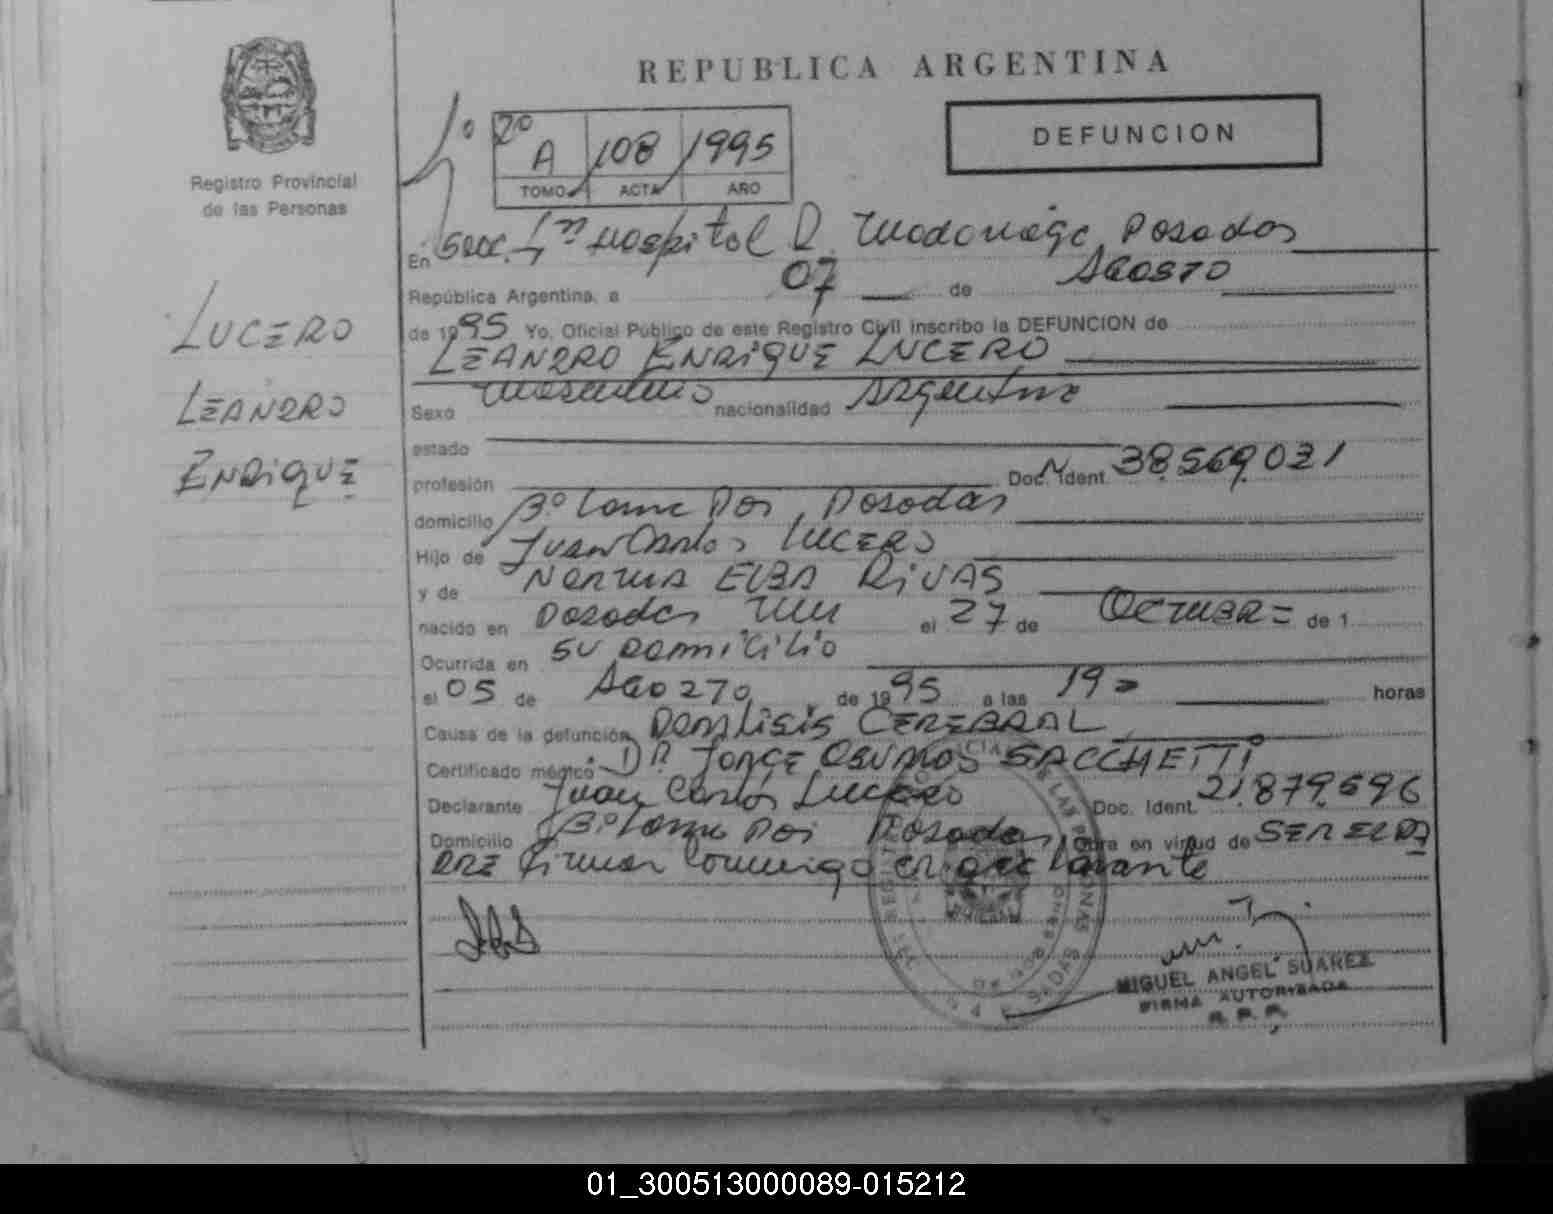 REPUBLICA ARGENTINA
Registro Provincial
de las Personas
1º
2º A 108 1995
TOMO ACTA AÑO
DEFUNCION
LUCERO
LEANDRO
ENRIQUE
En Secc. 1ra Hospital R. Madariaga Posadas
República Argentina, a 07 de AGOSTO
de 1995 Yo, Oficial Público de este Registro Civil inscribo la DEFUNCION de
LEANDRO ENRIQUE LUCERO
Sexo masculino nacionalidad Argentina
estado
profesión Doc. Ident. 38.569.021
domicilio Posadas
Hijo de Juan Carlos LUCERO
y de NORMA ELBA RIVAS
nacido en Posadas el 27 de OCTUBRE de 1
Ocurrida en SU DOMICILIO
el 05 de AGOSTO de 1995 a las 19 horas
Causa de la defunción PARALISIS CEREBRAL
Certificado médico DR. JORGE SACCHETTI
Declarante Juan Carlos Lucero Doc. Ident. 21.879.696
Domicilio Posadas Obra en virtud de SER EL PA
DRE firman conmigo el declarante
MIGUEL ANGEL SUAREZ
FIRMA AUTORIZADA
R. P. P.
01_300513000089-015212